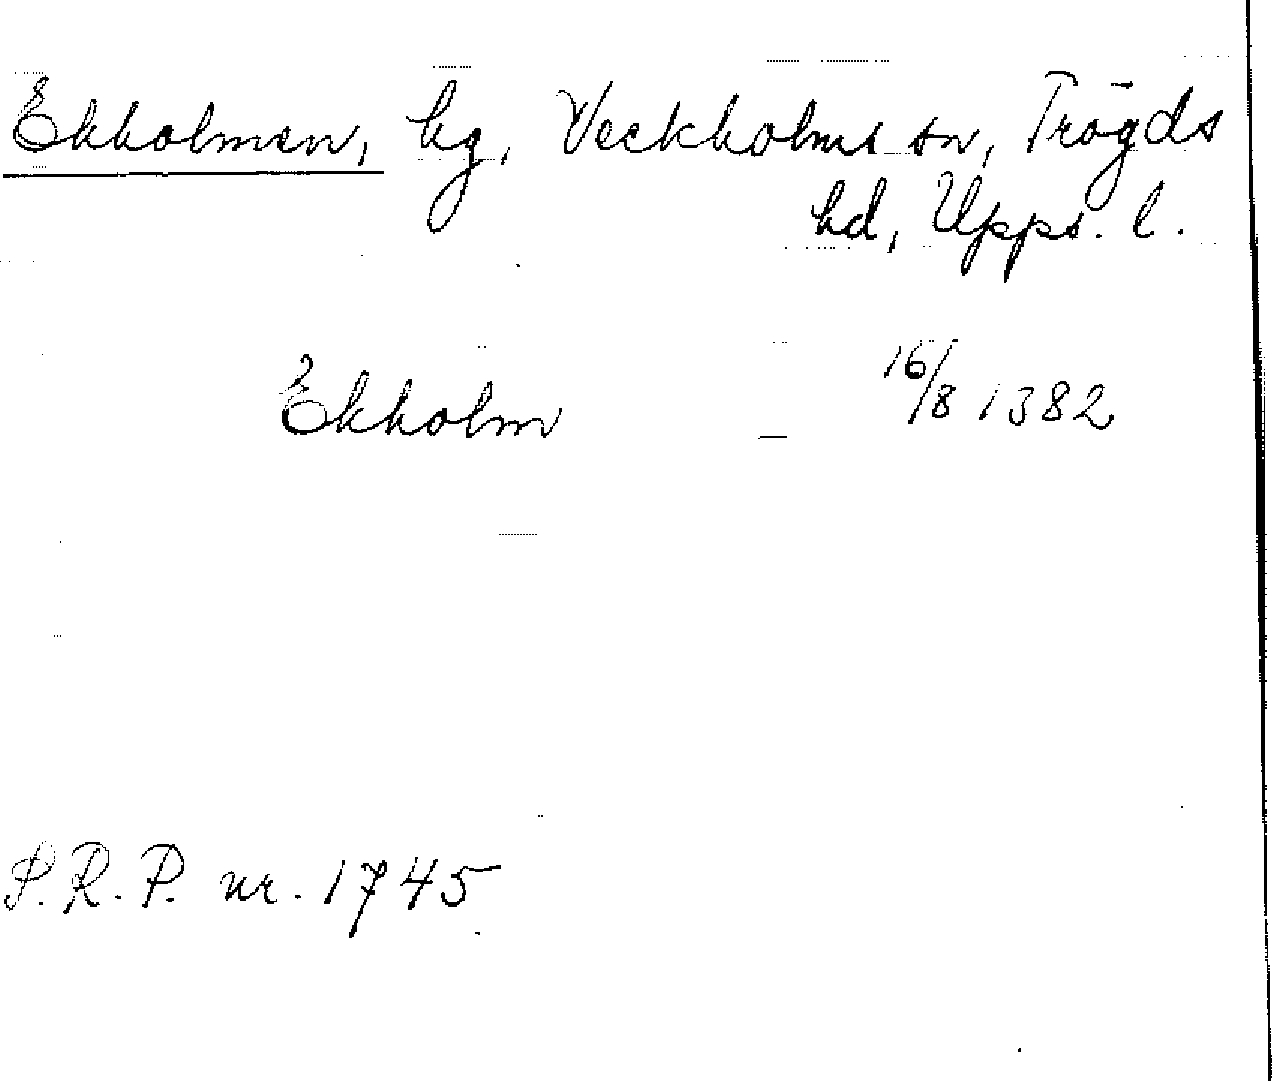 Ekholmen, hg, Veckholms sn, Trögds
hd, Upps. l.
Ekholm 16/8 1382
P.R.P. nr. 1745